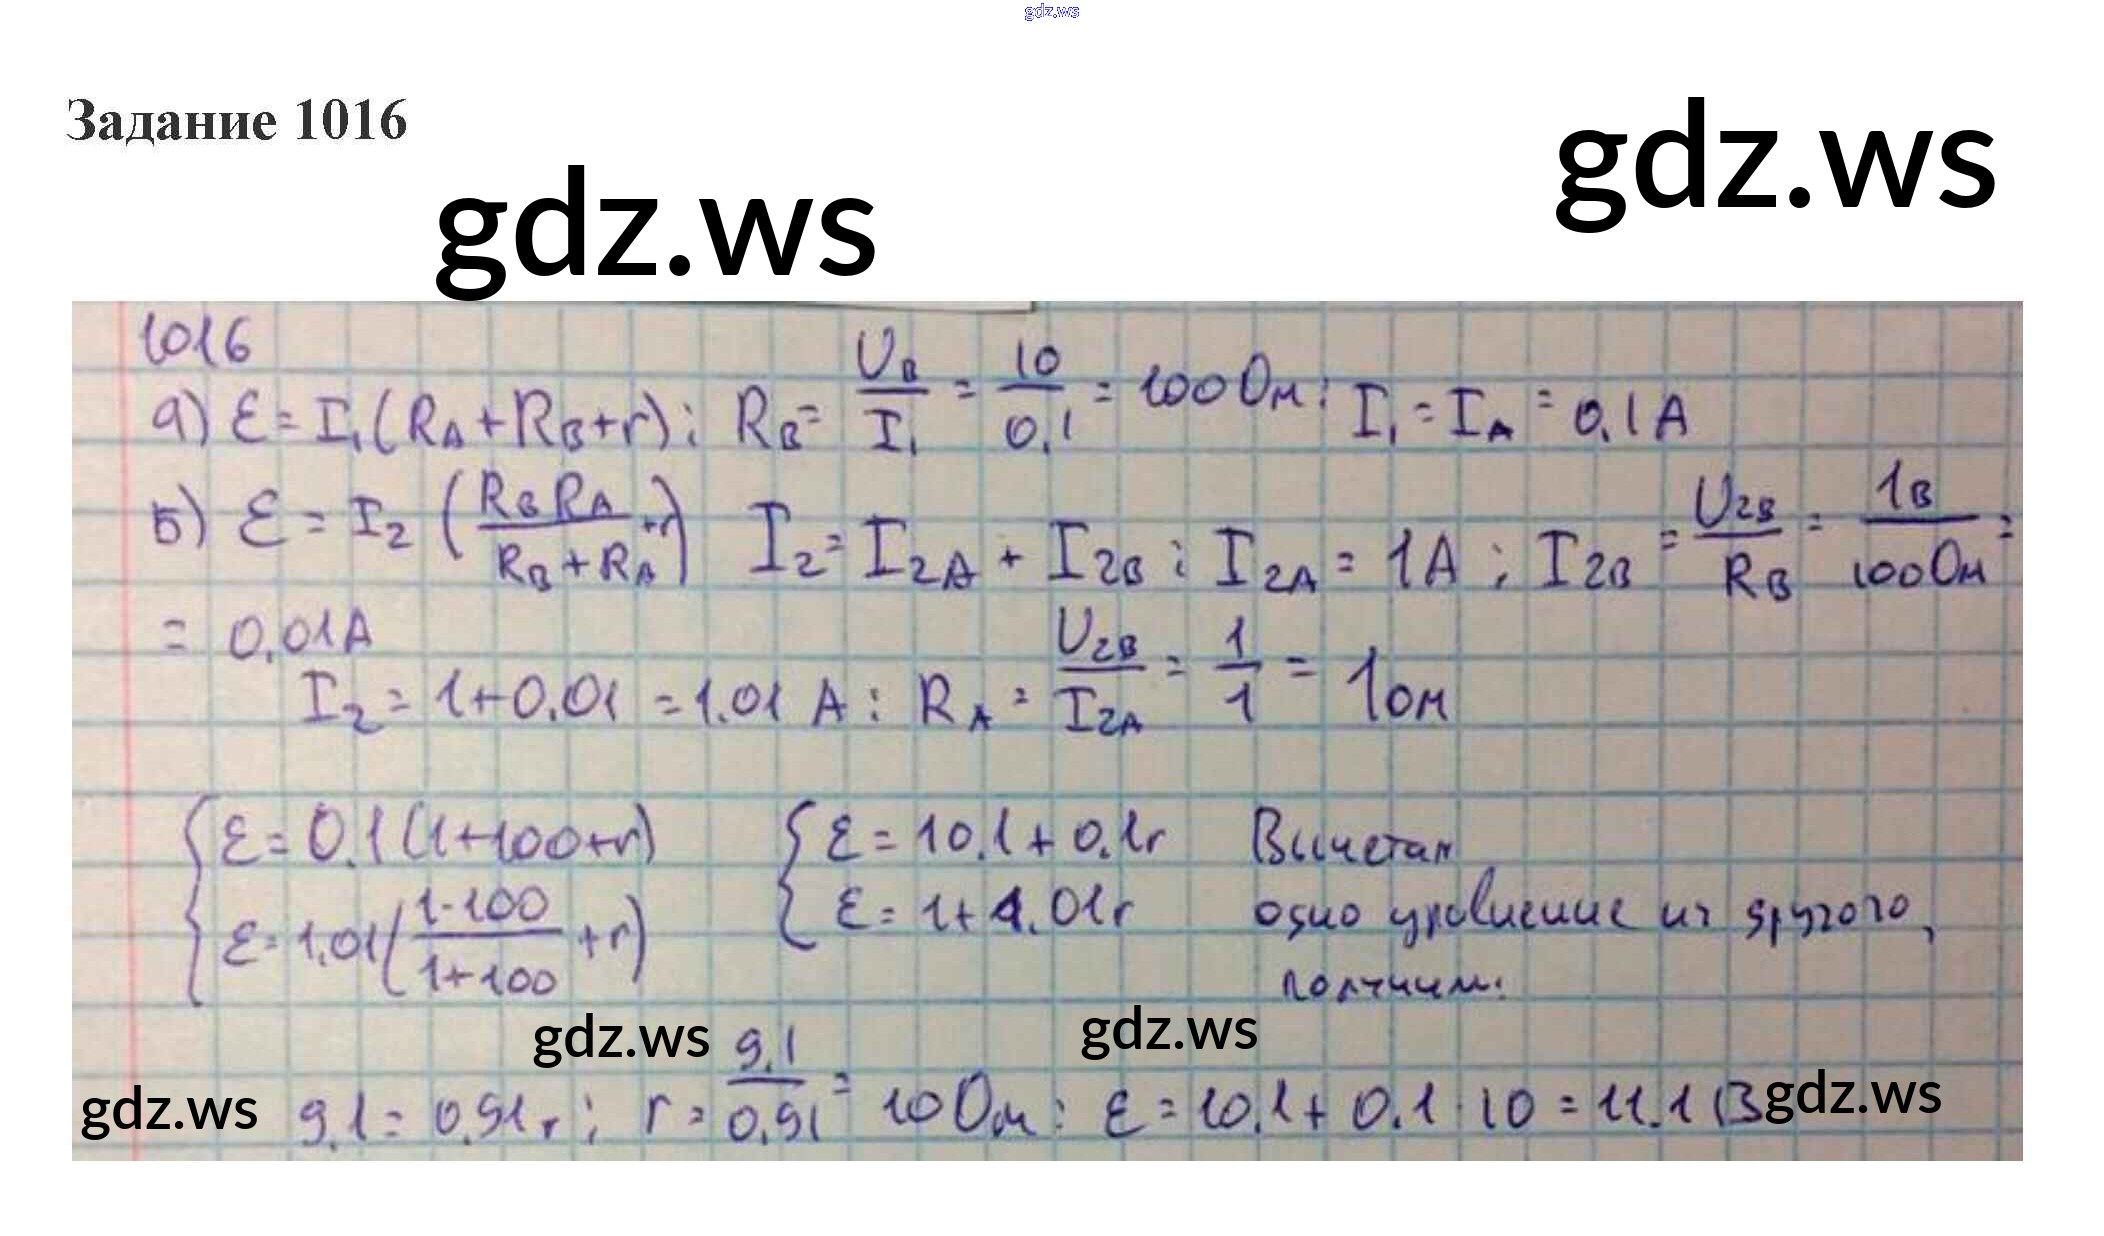 gdz.ws
Задание 1016
gdz.ws
gdz.ws
1016
а) Ɛ = I₁(R_A + R_B + r); R_B = U_B/I₁ = 10/0,1 = 100 Ом; I₁ = I_A = 0,1 А
Б) Ɛ = I₂ (R_B R_A/(R_B + R_A) + r) I₂ = I₂A + I₂B; I₂A = 1А; I₂B = U₂B/R_B = 1В/100 Ом =
= 0,01А
I₂ = 1 + 0,01 = 1.01 А; R_A = U₂B/I₂A = 1/1 = 1 Ом
{Ɛ = 0.1(1+100+r) {Ɛ = 10.1 + 0.1r Вычетам
{Ɛ = 1.01(1·100/(1+100) + r) {Ɛ = 1 + 1.01r одно уравнение из другого,
получим:
gdz.ws gdz.ws
gdz.ws 9.1 = 0,91r; r = 9.1/0,91 = 10 Ом; Ɛ = 10.1 + 0.1·10 = 11.1 В gdz.ws